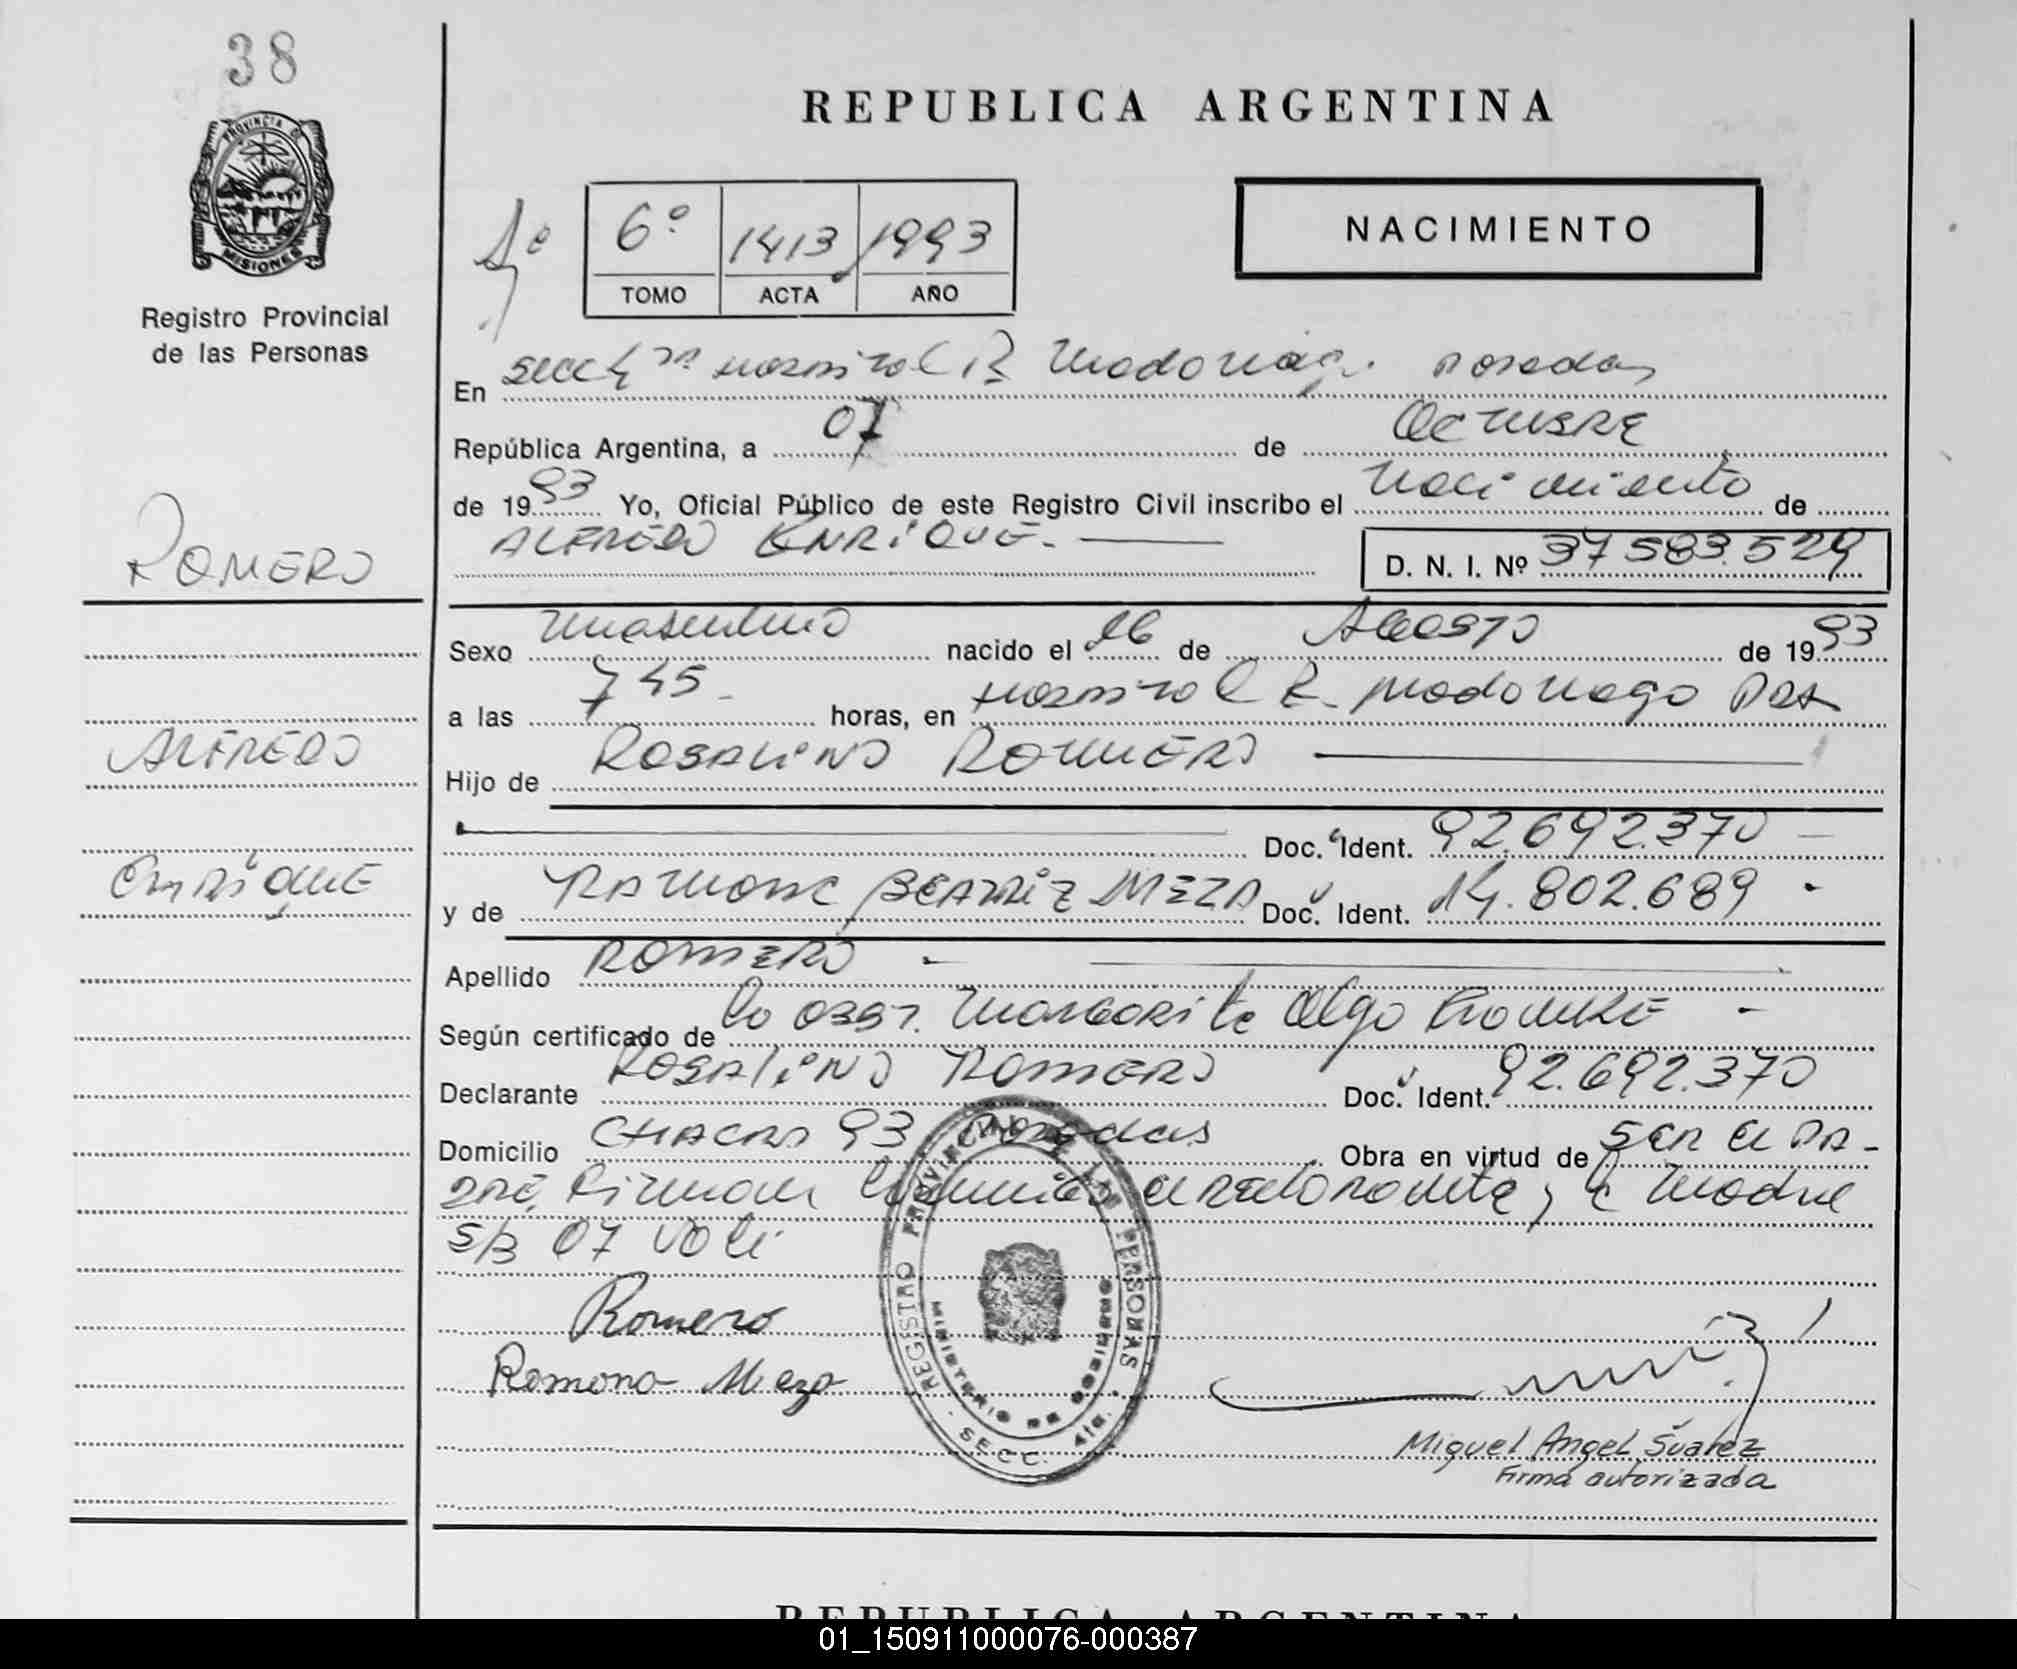 38
REPUBLICA ARGENTINA
PROVINCIA DE
MISIONES
Registro Provincial
de las Personas
6º 1413 1993
TOMO ACTA AÑO
NACIMIENTO
En Secc 4ta Hospital R Madariaga. Posadas
República Argentina, a 07 de Octubre
de 1993 Yo, Oficial Público de este Registro Civil inscribo el Nacimiento de
ALFREDO ENRIQUE.
D. N. I. Nº 37583.529
ROMERO
ALFREDO
Enrique
Sexo Masculino nacido el 26 de Agosto de 1993
a las 745 horas, en Hospital R. Madariaga Pdas
Hijo de ROSALINO ROMERO
Doc. Ident. 92.692.370
y de RAMONA BEATRIZ MEZA Doc. Ident. 14.802.689
Apellido ROMERO
Según certificado de la Obst. Margarita Olga
Declarante ROSALINO ROMERO Doc. Ident. 92.692.370
Domicilio CHACRA 93 Posadas Obra en virtud de SER el PA-
DRE, Firman el declarante, la Madre
S/B 07 Vale
Romero
Ramona Meza
REGISTRO PROVINCIAL DE LAS PERSONAS
MINISTERIO DE GOBIERNO
SECC. 4ta.
Miguel Angel Suarez
Firma autorizada
REPUBLICA ARGENTINA
01_150911000076-000387